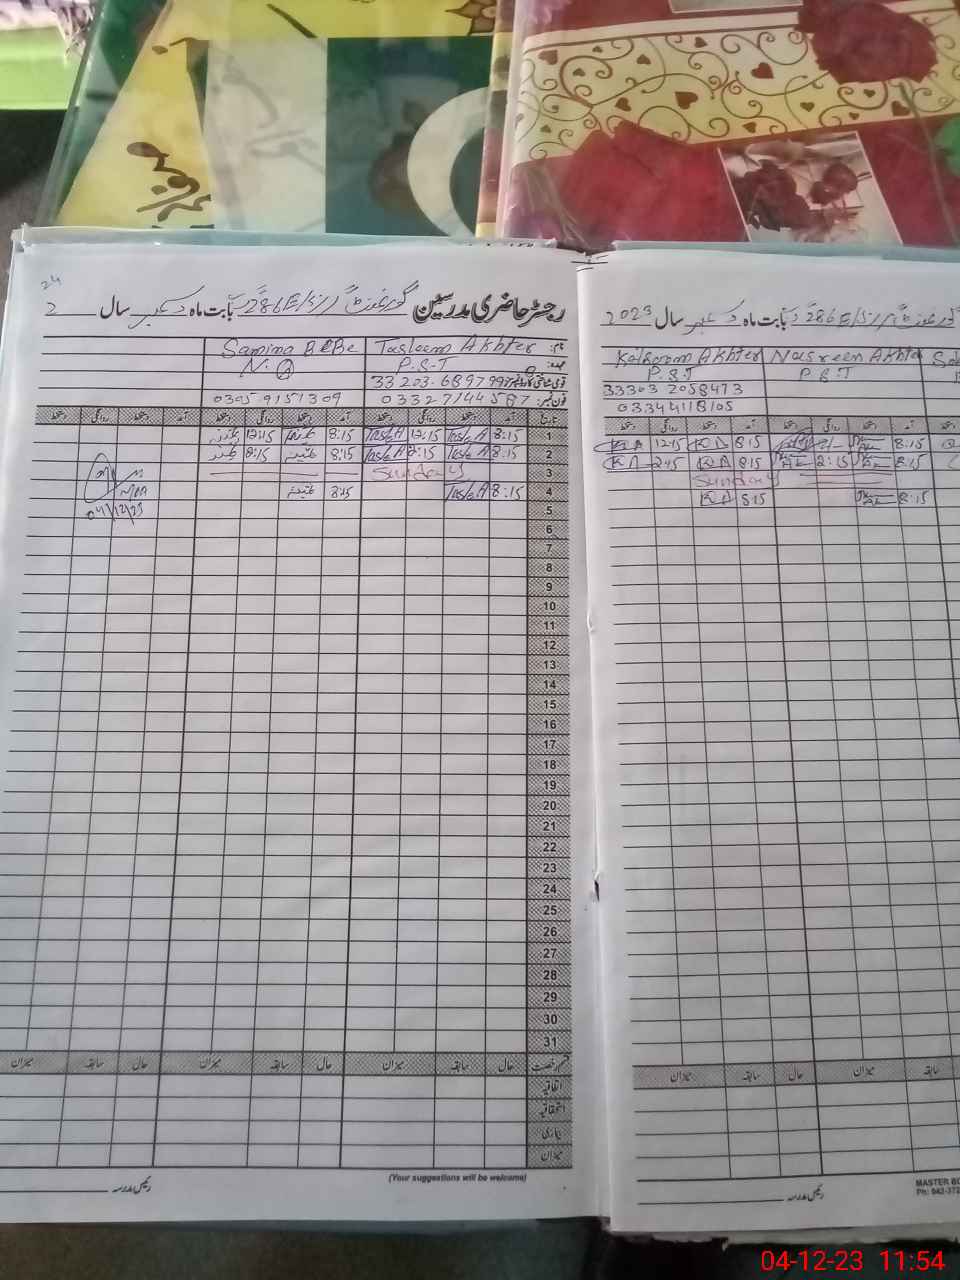 24
رجسٹر حاضری مدرسین گورنمنٹ 286E/B بابت ماہ دسمبر سال 2
نام: Tasleem Akhter Samina BiBi
عہدہ: P.S.T N.Q
قومی شناختی کارڈ نمبر
فون نمبر: 03327144587 0305 9151309
تاریخ آمد دستخط روانگی دستخط آمد دستخط روانگی دستخط آمد دستخط روانگی دستخط
1 8:15 Tasle A 12:15 Tasle A 8:15 12:15
2 8:15 Tasle A 2:15 Tasle A 8:15 2:15
3 Sunday
4 8:15 Tasle A 8:15
5 04/12/23
6
7
8
9
10
11
12
13
14
15
16
17
18
19
20
21
22
23
24
25
26
27
28
29
30
31
قسم رخصت حال سابقہ میزان حال سابقہ میزان حال سابقہ میزان
اتفاقیہ
استحقاقیہ
بیماری
میزان
(Your suggestions will be welcome)
رئیس مدرسہ
286E/B بابت ماہ دسمبر سال 2023
Nasreen Akhter Kalsoom Akhter
P.S.T P.S.T
33303 2058473
03344118105
آمد دستخط روانگی دستخط آمد دستخط روانگی دستخط
8:15 8:15 KA 12:15 KA
8:15 2:15 8:15 KA 2:15 KA
Sunday
8:15 8:15 KA
سابقہ میزان حال سابقہ میزان
رئیس مدرسہ
MASTER BO
Ph: 042-372
04-12-23 11:54